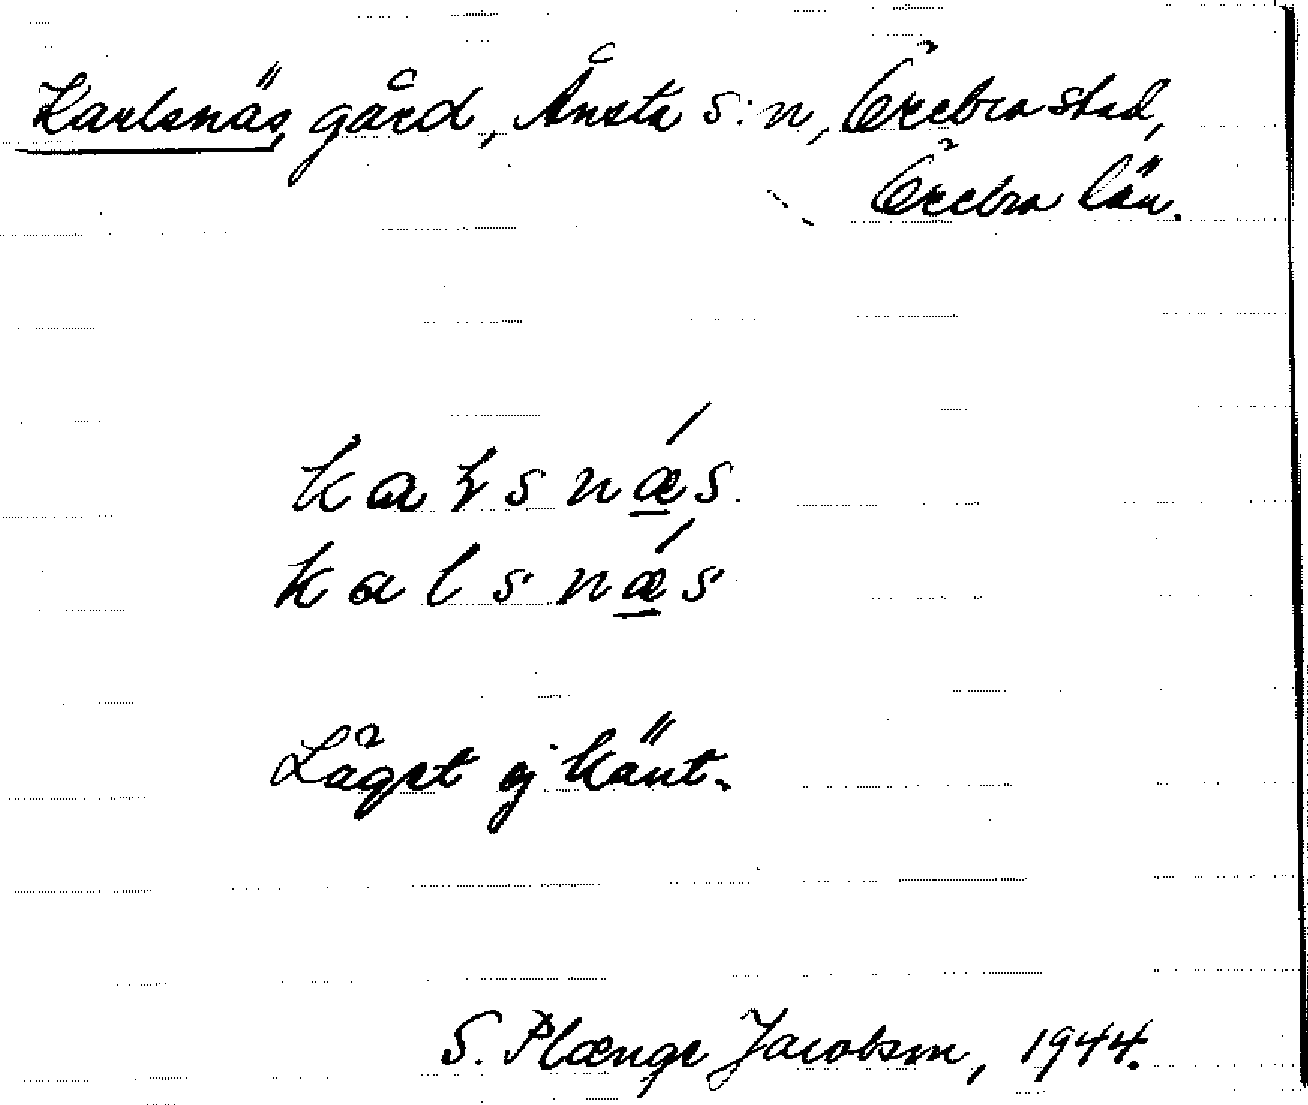 Karlsnäs, gård, Ånsta s:n, Örebro stad,
Örebro län.
kaɫsnǽs.
kalsnǽs
Läget ej känt.
S. Plænge Jacobson, 1944.